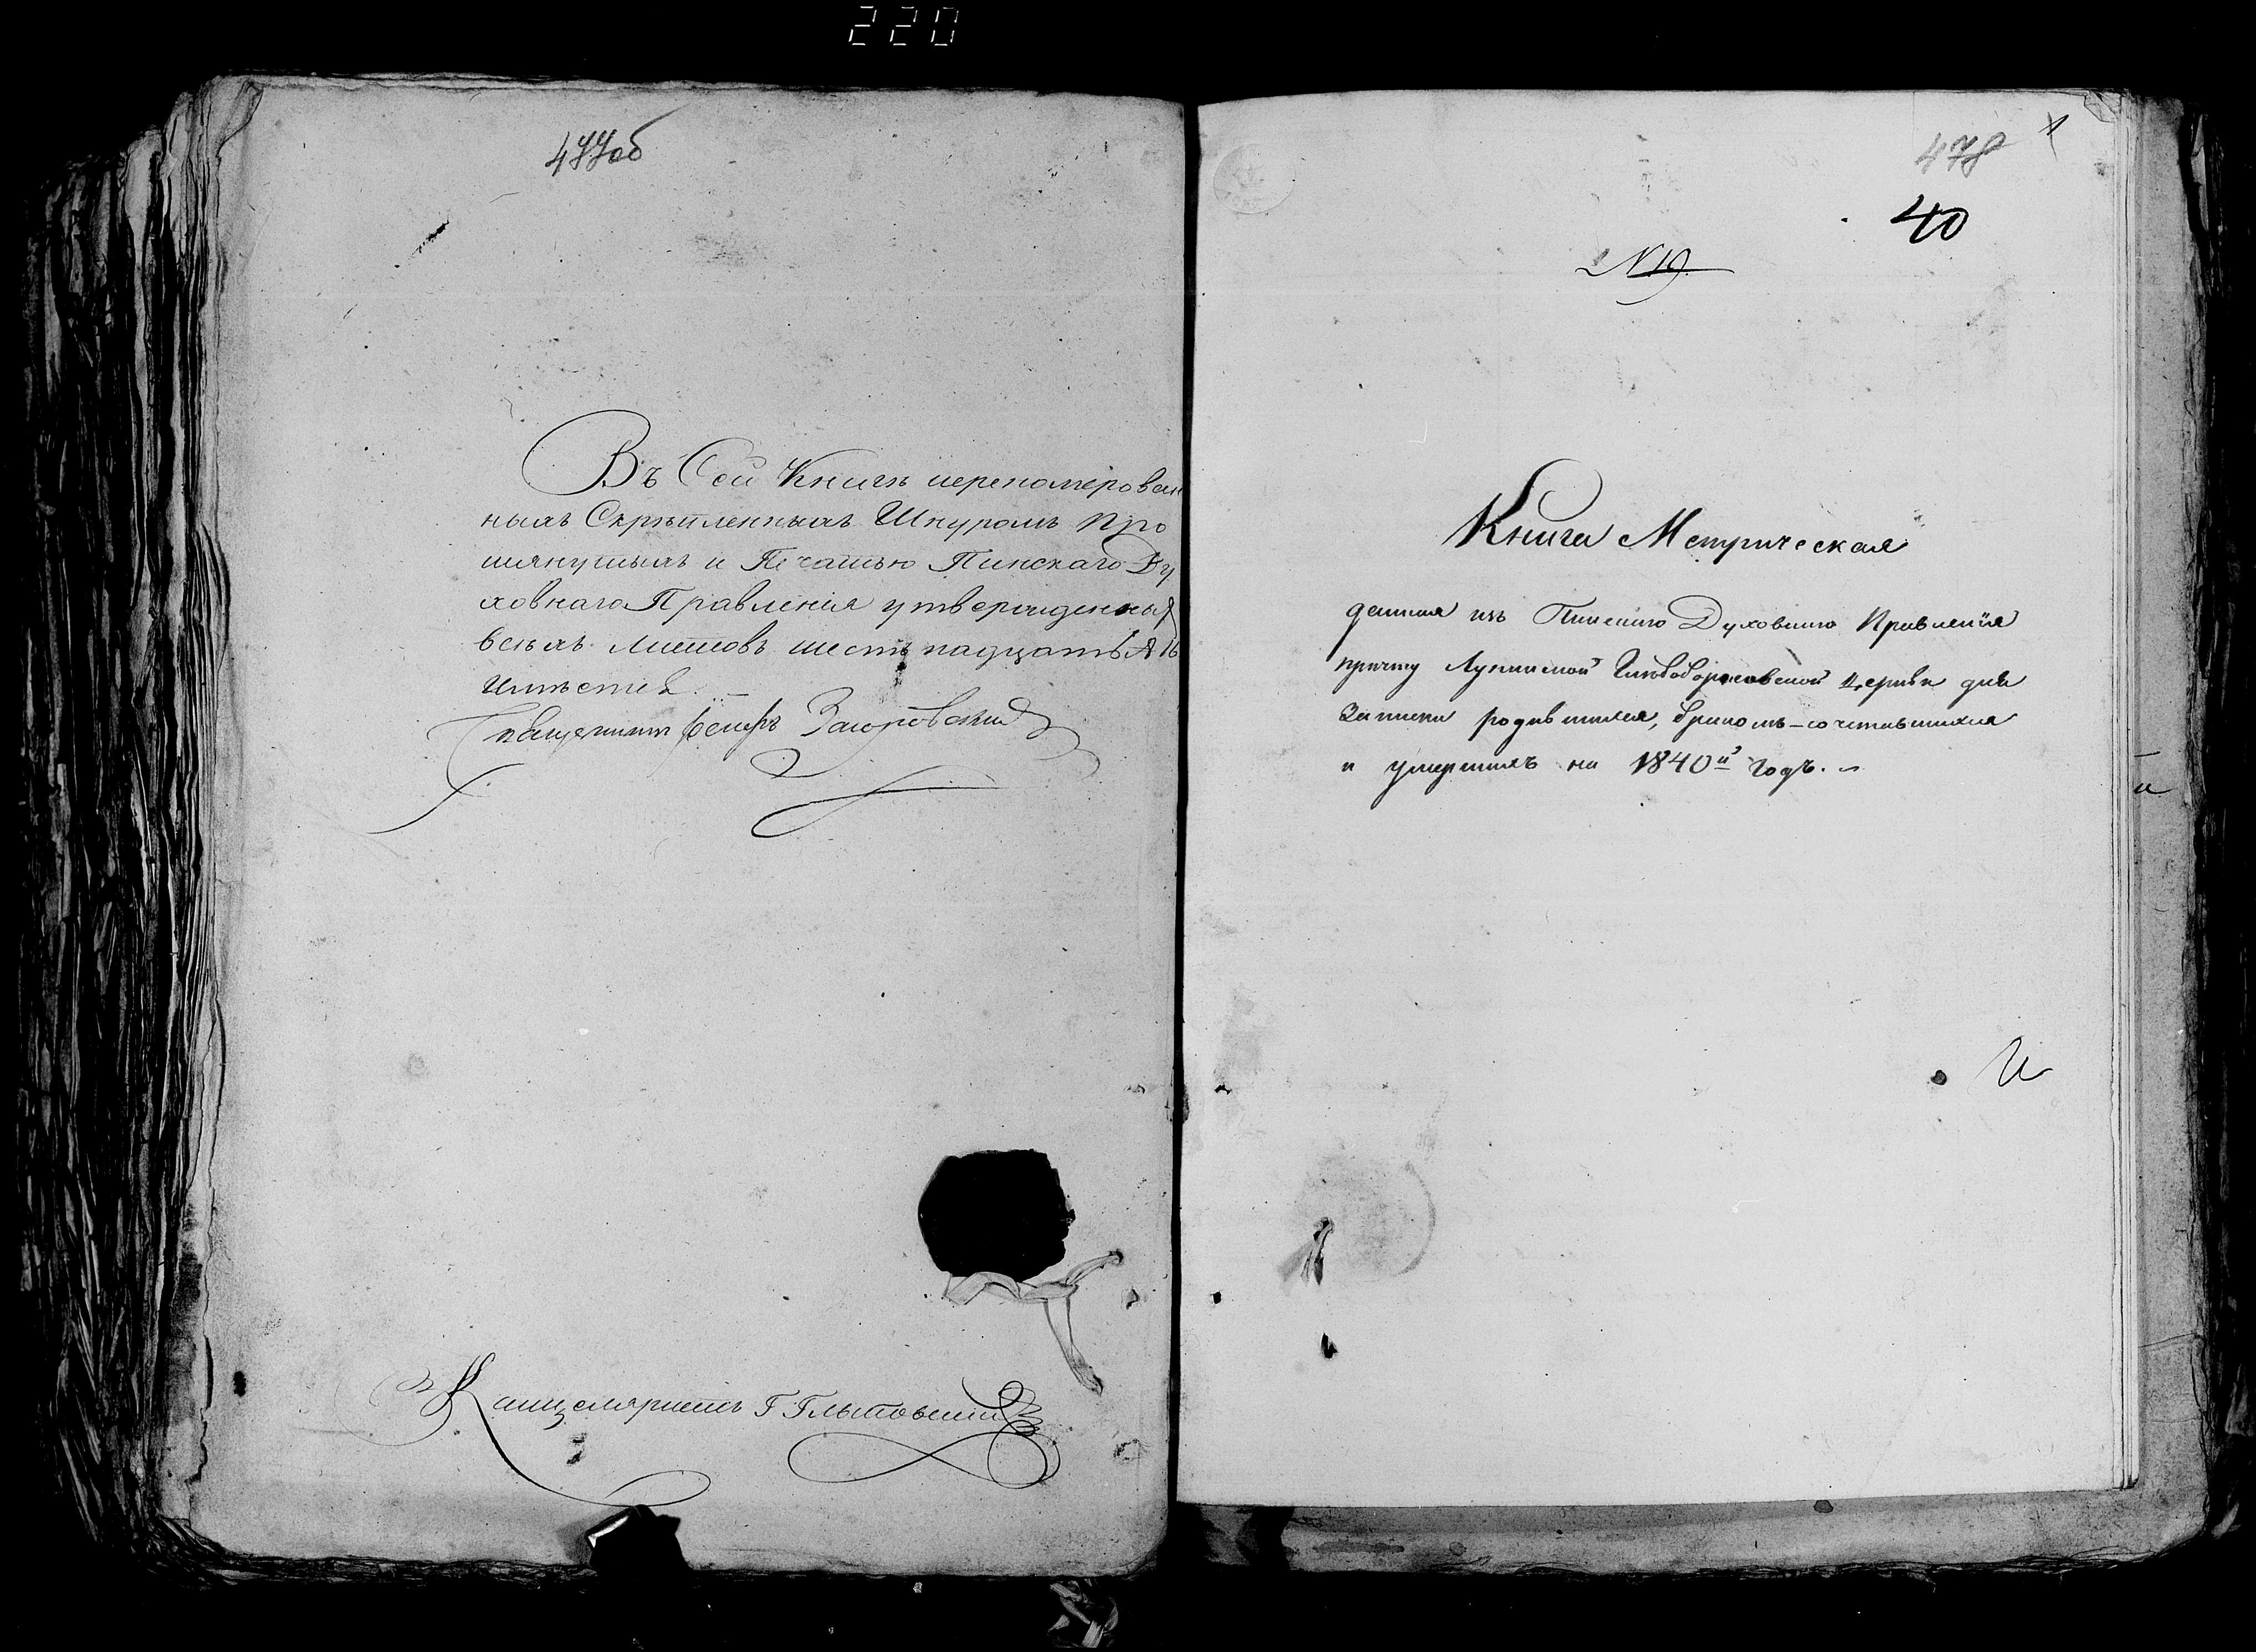 220
477об
Въ Сей Книгѣ переномерован
ныхъ Скрѣпленныхъ Шнуромъ про
тянутыхъ и Печатью Пинскаго Ду
ховнаго Правленія утвержденны
всѣхъ листовъ шестьнадцать 16
имѣется.
Священникъ
Канцеляристъ Г
478
40
N 19
Книга Метрическая
данная изъ Пинскаго Духовнаго Правленія
причту Лунинской Борисовской Церкви для
записки родившихся, бракомъ-сочетавшихся
и умершихъ на 1840й годъ.